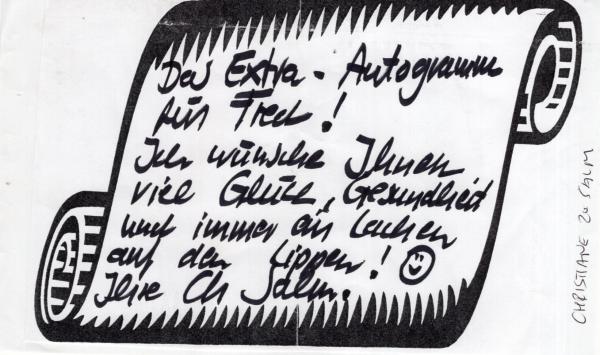 Das Extra - Autogramm
für Fred !
Ich wünsche Ihnen
viel Glück, Gesundheit
und immer ein Lachen
auf den Lippen! ☺
Ihre Ch Salm.
CHRISTIANE zu SALM